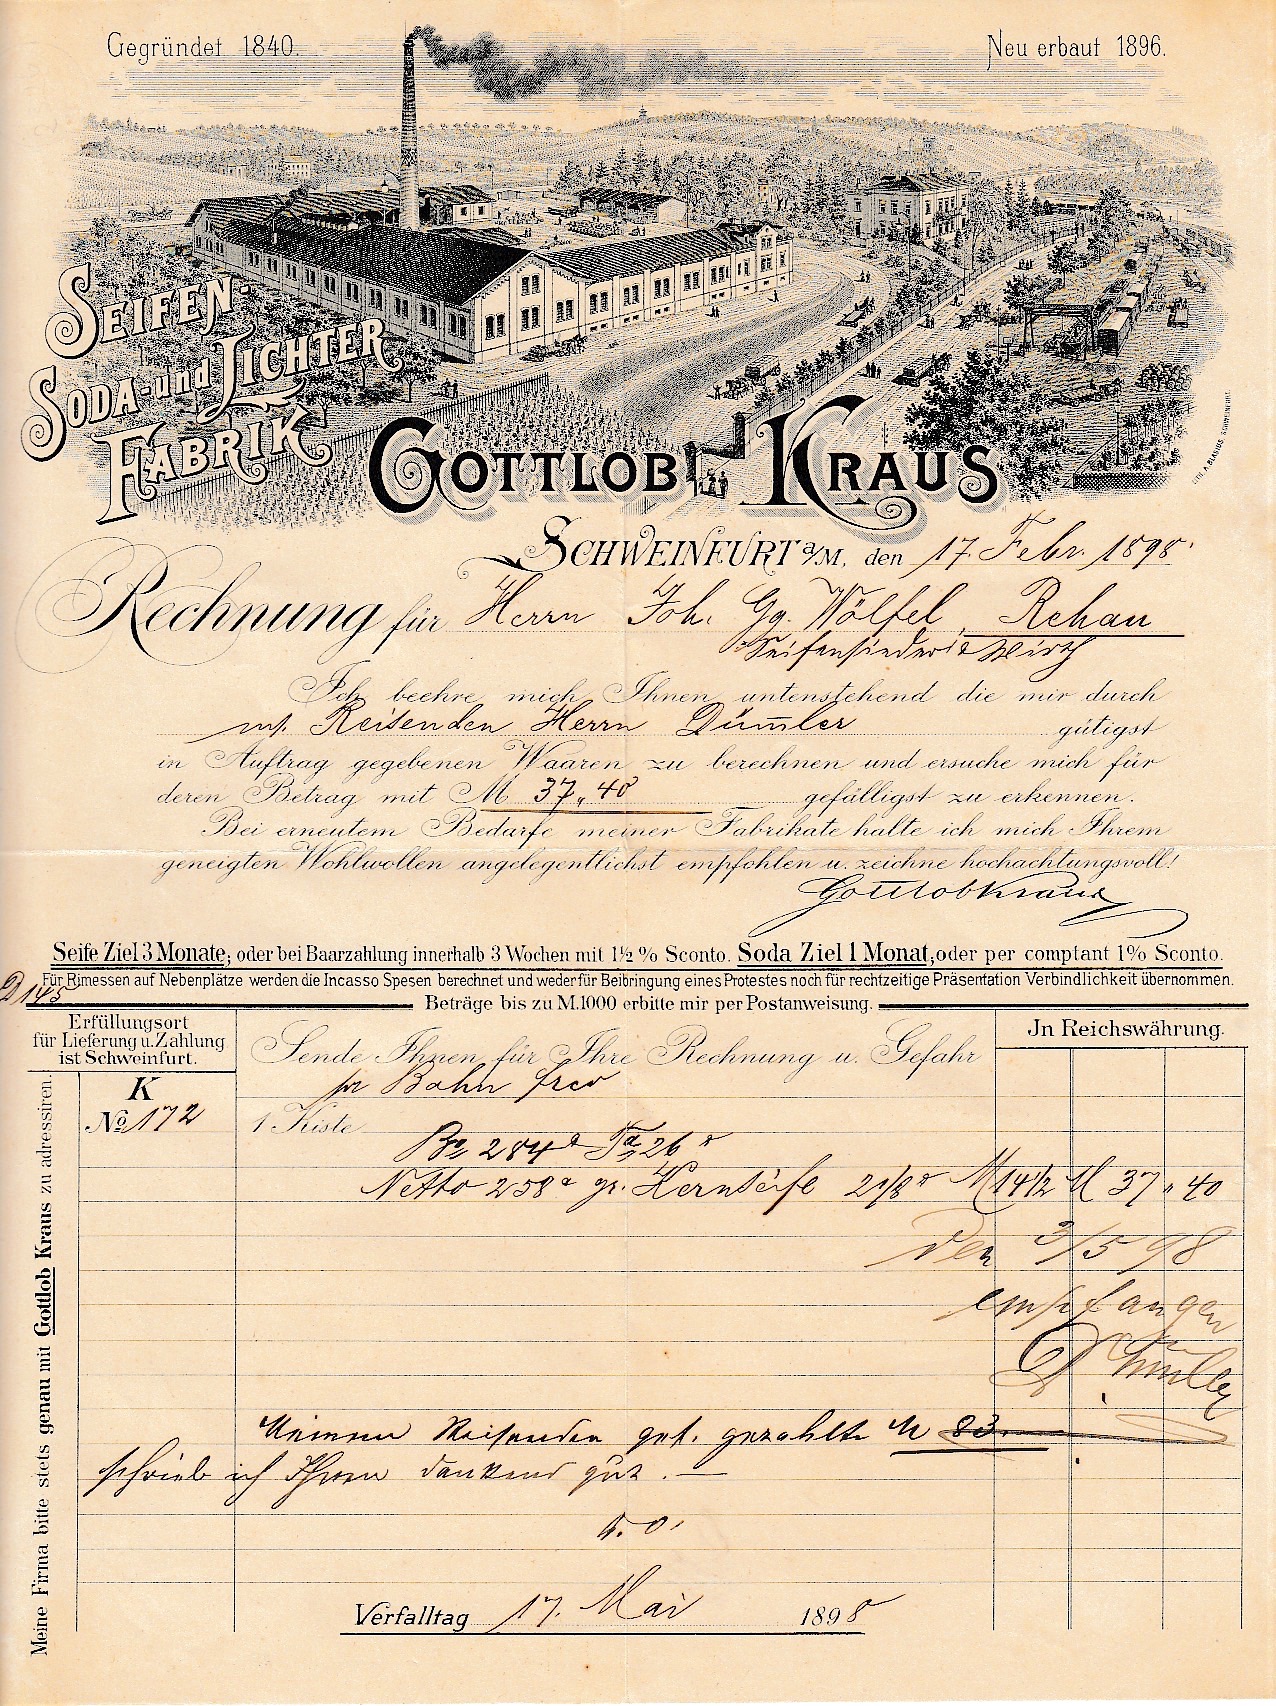 Gegründet 1840.
Neu erbaut 1896.
SEIFEN-
SODA- und LICHTER
FABRIK
GOTTLOB KRAUS
LITH. A. BLAUDS SCHWEINFURT.
SCHWEINFURT a/M, den 17. Febr. 1898.
Rechnung für Herrn Joh. Gg. Wölfel, Rehau
Seifensiederei & Wirth
Ich beehre mich Ihnen untenstehend die mir durch
m/. Reisenden Herrn Dümler gütigst
in Auftrag gegebenen Waaren zu berechnen und ersuche mich für
deren Betrag mit M 37„40 gefälligst zu erkennen.
Bei erneutem Bedarfe meiner Fabrikate halte ich mich Ihrem
geneigten Wohlwollen angelegentlichst empfohlen u. zeichne hochachtungsvoll!
Gottlob Kraus
Seife Ziel 3 Monate; oder bei Baarzahlung innerhalb 3 Wochen mit 1½ % Sconto. Soda Ziel 1 Monat, oder per comptant 1% Sconto.
Für Rimessen auf Nebenplätze werden die Incasso Spesen berechnet und weder für Beibringung eines Protestes noch für rechtzeitige Präsentation Verbindlichkeit übernommen.
D 145
Beträge bis zu M.1000 erbitte mir per Postanweisung.
Erfüllungsort
für Lieferung u. Zahlung
ist Schweinfurt.
Jn Reichswährung.
Sende Ihnen für Ihre Rechnung u. Gefahr
pr Bahn frco
K
No 172
1 Kiste
Bo 284 Ta 26
Netto 258 gr. Kernseife 21/8 M 14 1/2 M 37 „ 40
Den 3/5 98
empfangen
Meinem Reisenden gef. gezahlte M 83.
schrieb ich Ihnen dankend gut. —
D. O.
Verfalltag 17. Mai 1898
Meine Firma bitte stets genau mit Gottlob Kraus zu adressiren.